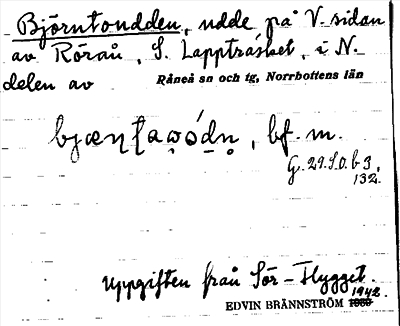 Björntondden, udde på V. sidan
av Röraů, S. Lappträsket, i N.
delen av Råneå sn och tg, Norrbottens län
bjæn̥ta, bf. m.
G. 29. S. D. b 3,
132.
Uppgiften från Sör-Flygget.
1942.
EDVIN BRÄNNSTRÖM